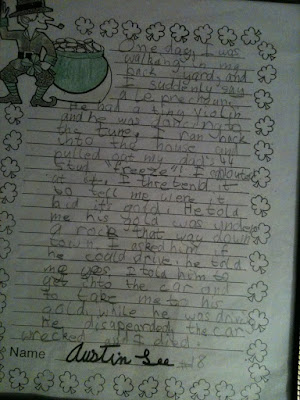 One day I was
walking in my
back yard, and
I suddenly say
a leprechaun.
He had a tiny violin
and he was dancing to
the tune. I ran back
into the house and
pulled out my dad's 44
"freeze"! I shouted
at it. I thretend it
to tell me were it
hid it's gold. He told
me his gold was under
a rock "that way down
town". I asked him if
he could drive. he told
me yes. I told him to
get into the car and
to take me to his
gold. while he was driving
He disapeared, the car
wrecked and I died.
Name Austin Lee #18